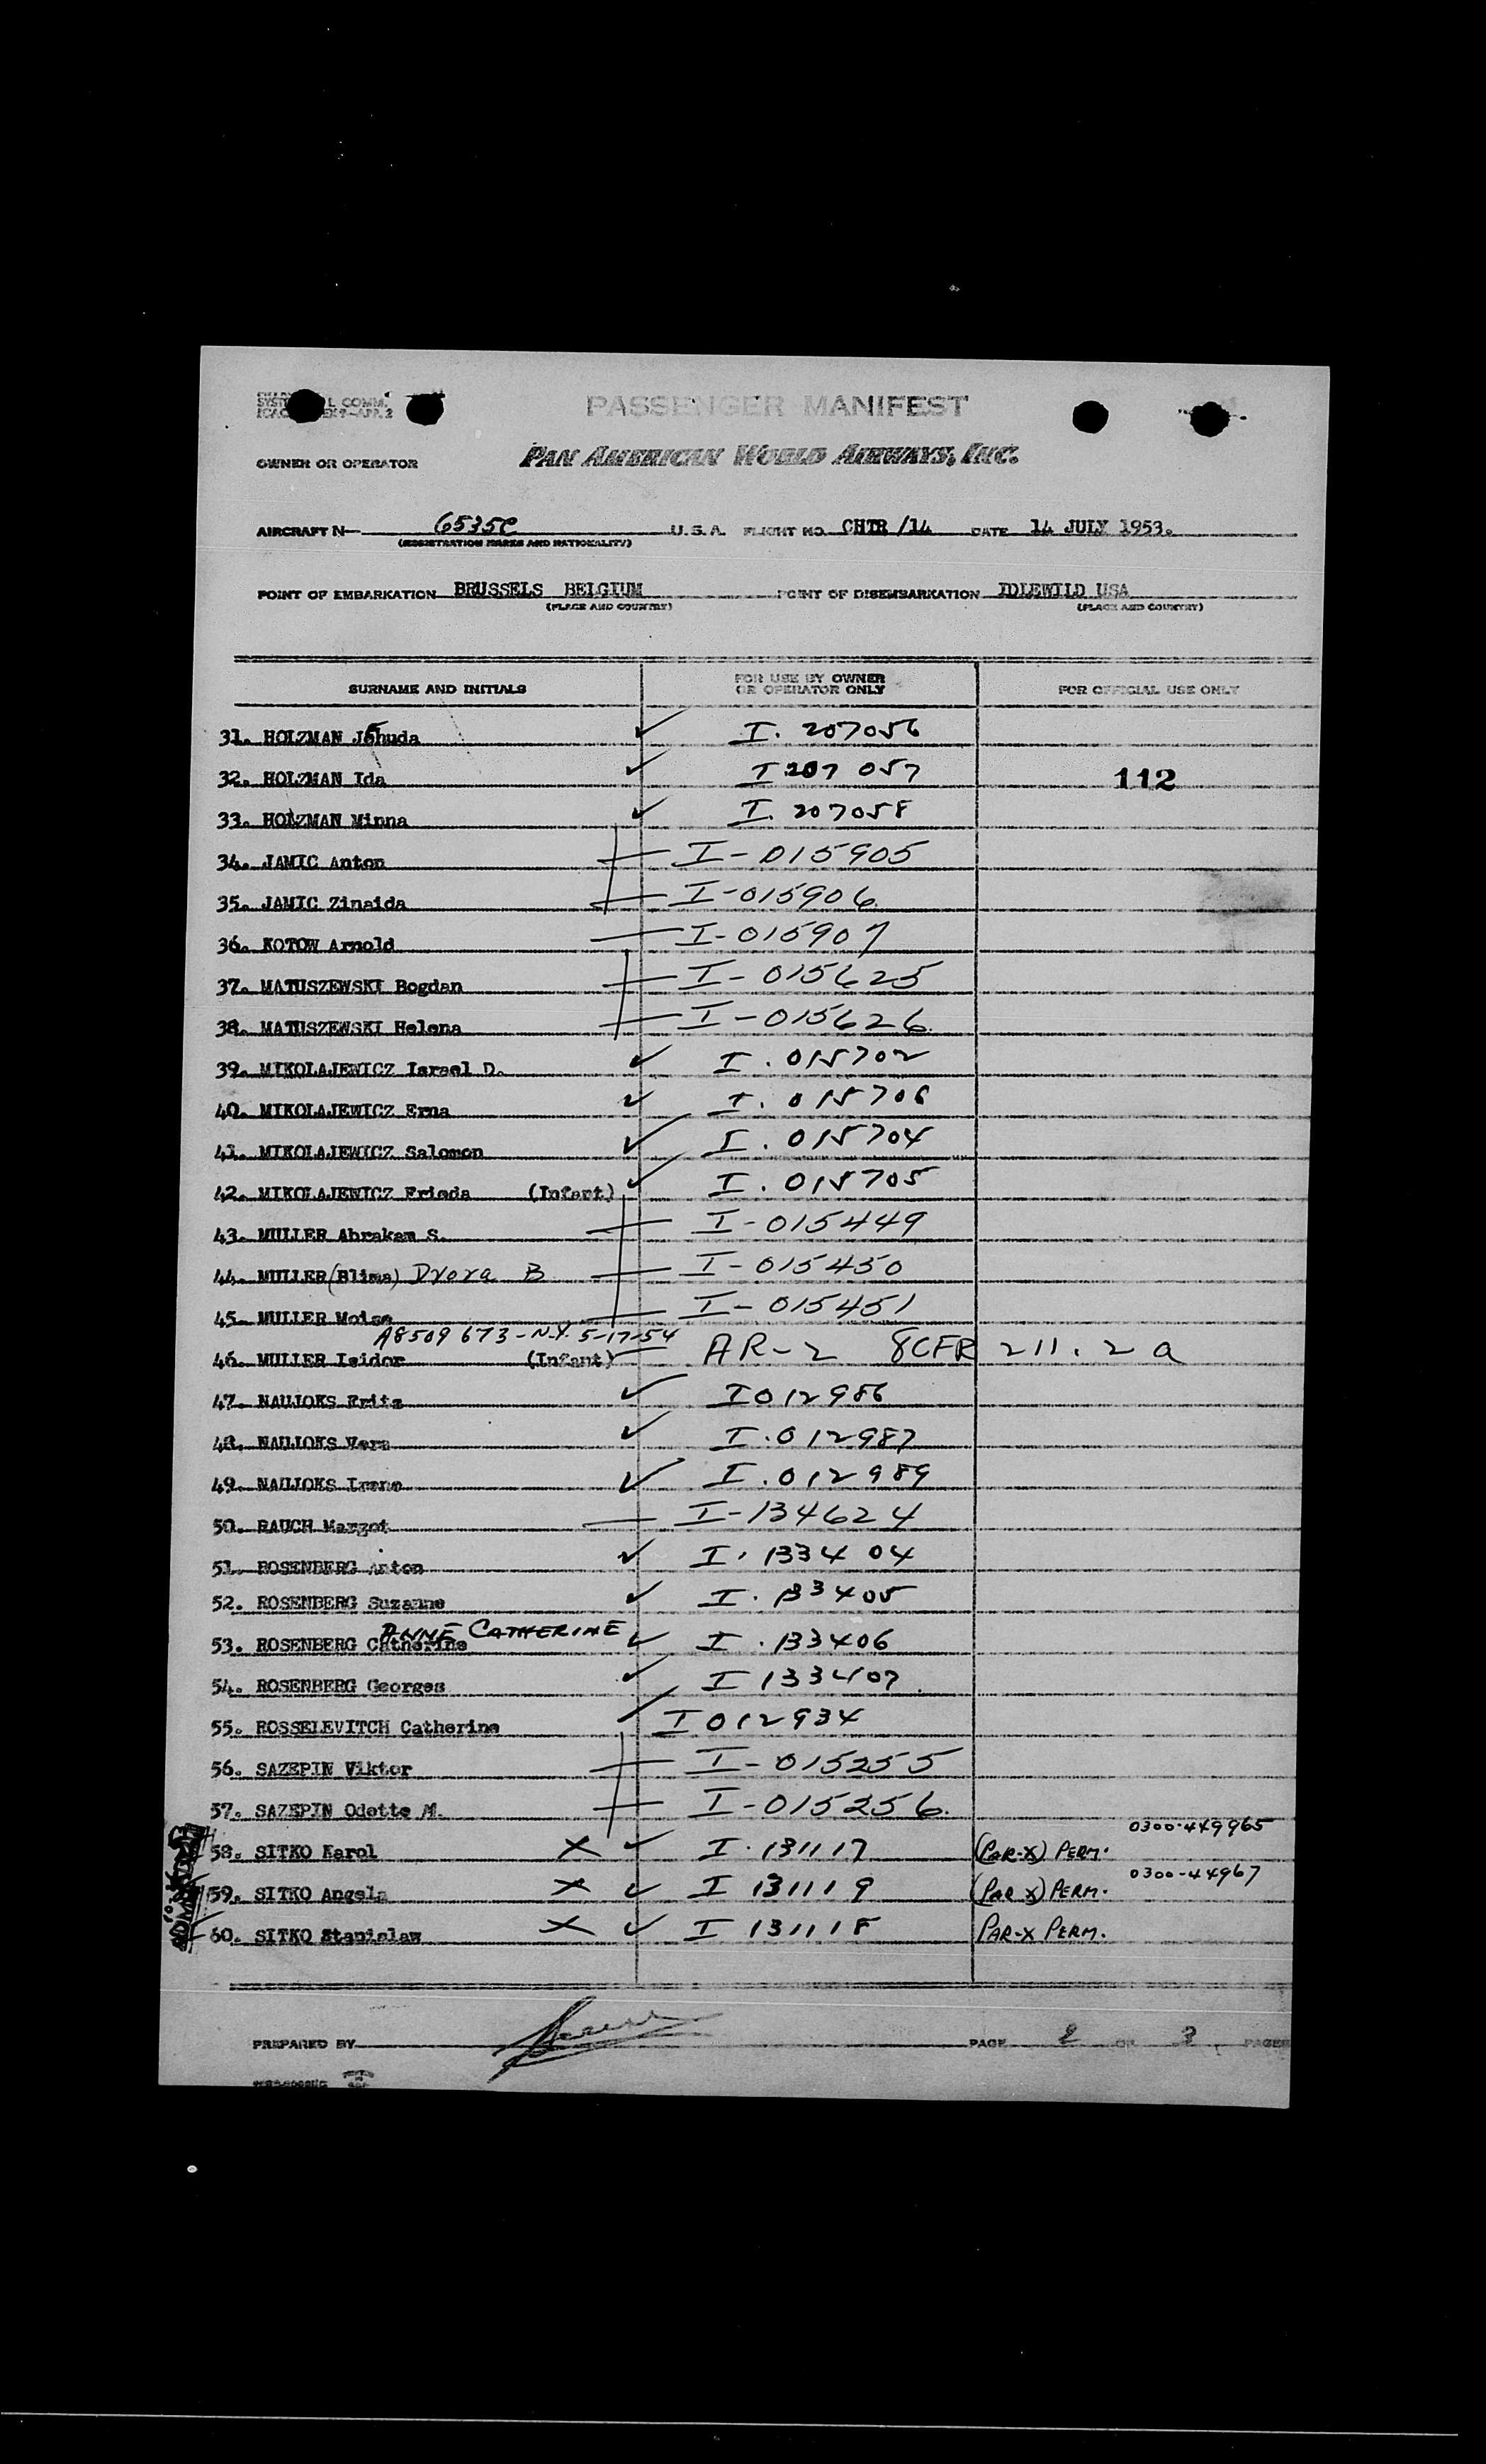 L COMM.
PASSENGER MANIFEST
OWNER OR OPERATOR PAN AMERICAN WORLD AIRWAYS, INC.
AIRCRAFT N— 6535C U.S.A. FLIGHT NO. CHTR /14 DATE 14 JULY 1953.
(REGISTRATION MARKS AND NATIONALITY)
POINT OF EMBARKATION BRUSSELS BELGIUM POINT OF DISEMBARKATION IDLEWILD USA
(PLACE AND COUNTRY) (PLACE AND COUNTRY)
SURNAME AND INITIALS FOR USE BY OWNER OR OPERATOR ONLY FOR OFFICIAL USE ONLY
31. HOLZMAN Jehuda I. 207056
32. HOLZMAN Ida I 207 057 112
33. HOLZMAN Minna I. 207058
34. JAMIC Anton I-015905
35. JAMIC Zinaida I-015906
36. KOTOW Arnold I-015907
37. MATUSZEWSKI Bogdan I-015625
38. MATUSZEWSKI Helena I-015626
39. MIKOLAJEWICZ Israel D. I. 015702
40. MIKOLAJEWICZ Erna I. 015706
41. MIKOLAJEWICZ Salomon I. 015704
42. MIKOLAJEWICZ Frieda (Infant) I. 015705
43. MULLER Abraham S. I-015449
44. MULLER (Blima) Dvora B I-015450
45. MULLER Moise I-015451
A8509673-N.Y. 5-17-54
46. MULLER Isidor (Infant) AR-2 8CFR 211.2a
47. NAUJOKS Fritz I 012986
48. NAUJOKS Vera I. 012987
49. NAUJOKS Irene I. 012989
50. RAUCH Margot I-134624
51. ROSENBERG Anton I. 133404
52. ROSENBERG Suzanne I. 133405
ANNE CATHERINE
53. ROSENBERG Catherine I. 133406
54. ROSENBERG Georges I 133407
55. ROSSELEVITCH Catherine I 012934
56. SAZEPIN Viktor I-015255
57. SAZEPIN Odette M. I-015256
0300-449965
58. SITKO Karol X I. 131117 (PAR-X) PERM.
0300-44967
59. SITKO Angela X I 131119 (PAR X) PERM.
60. SITKO Stanislaw X I 131118 PAR-X PERM.
PREPARED BY PAGE 2 OF 3 PAGES